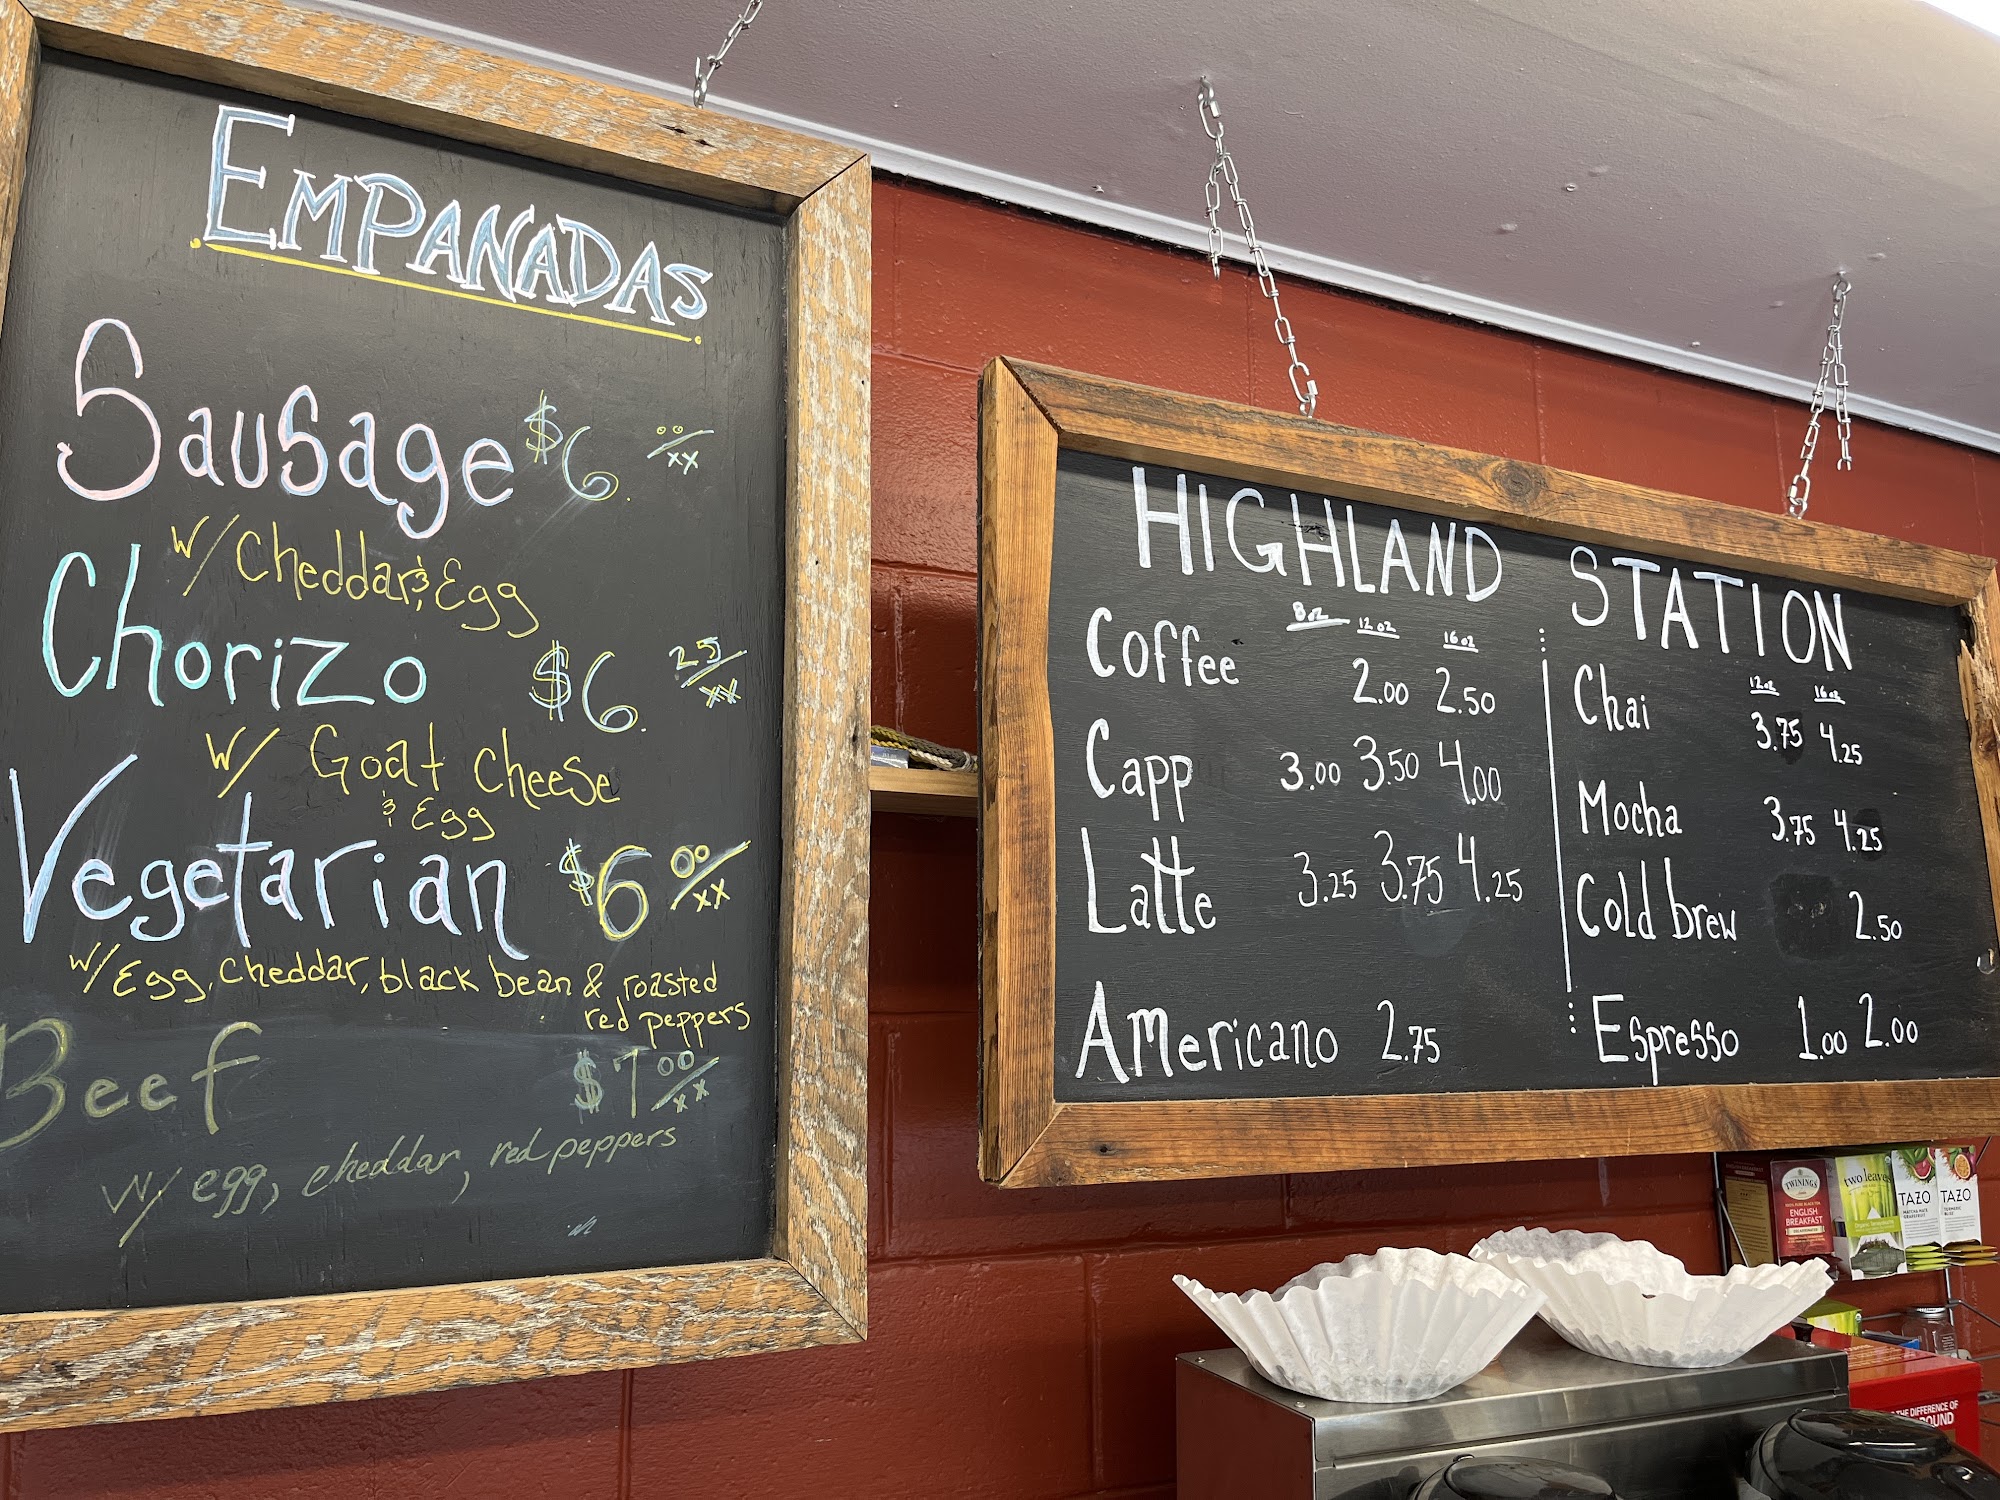 EMPANADAS
Sausage $6. 00/xx
w/ cheddar & Egg
Chorizo $6. 25/xx
w/ Goat cheese
& Egg
Vegetarian $6 00/xx
w/ Egg, cheddar, black bean & roasted
red peppers
Beef $7 00/xx
w/ egg, cheddar, red peppers
HIGHLAND STATION
8 oz 12 oz 16 oz
Coffee 2.00 2.50
Capp 3.00 3.50 4.00
Latte 3.25 3.75 4.25
Americano 2.75
12 oz 16 oz
Chai 3.75 4.25
Mocha 3.75 4.25
Cold brew 2.50
Espresso 1.00 2.00
TWININGS
ENGLISH
BREAKFAST
two leaves
TAZO
TAZO
THE DIFFERENCE OF